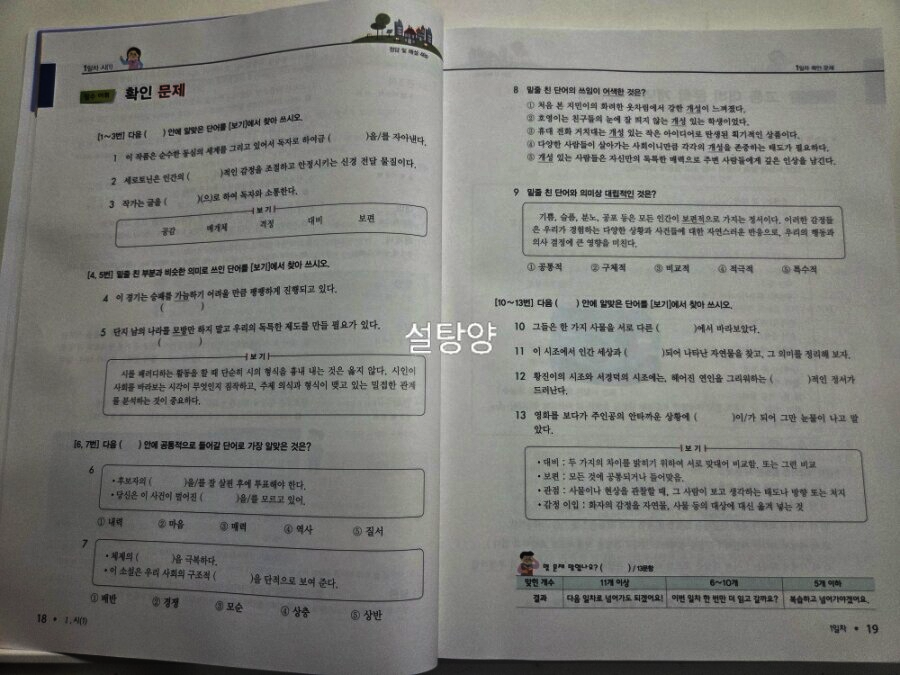 정답 및 해설 46p
1일차 시(1)
필수 어휘 확인 문제
[1~3번] 다음 ( ) 안에 알맞은 단어를 [보기]에서 찾아 쓰시오.
1 이 작품은 순수한 동심의 세계를 그리고 있어서 독자로 하여금 ( )을/를 자아낸다.
2 세로토닌은 인간의 ( )적인 감정을 조절하고 안정시키는 신경 전달 물질이다.
3 작가는 글을 ( )(으)로 하여 독자와 소통한다.
보기
공감 매개체 격정 대비 보편
[4, 5번] 밑줄 친 부분과 비슷한 의미로 쓰인 단어를 [보기]에서 찾아 쓰시오.
4 이 경기는 승패를 가늠하기 어려울 만큼 팽팽하게 진행되고 있다.
( )
5 단지 남의 나라를 모방만 하지 말고 우리의 독특한 제도를 만들 필요가 있다.
( )
보기
시를 패러디하는 활동을 할 때 단순히 시의 형식을 흉내 내는 것은 옳지 않다. 시인이
사회를 바라보는 시각이 무엇인지 짐작하고, 주제 의식과 형식이 맺고 있는 밀접한 관계
를 분석하는 것이 중요하다.
[6, 7번] 다음 ( ) 안에 공통적으로 들어갈 단어로 가장 알맞은 것은?
6
• 후보자의 ( )을/를 잘 살핀 후에 투표해야 한다.
• 당신은 이 사건이 벌어진 ( )을/를 모르고 있어.
① 내력 ② 마음 ③ 매력 ④ 역사 ⑤ 질서
7
• 체제의 ( )을 극복하다.
• 이 소설은 우리 사회의 구조적 ( )을 단적으로 보여 준다.
① 배반 ② 경쟁 ③ 모순 ④ 상충 ⑤ 상반
18 • Ⅰ. 시(1)
1일차 확인 문제
8 밑줄 친 단어의 쓰임이 어색한 것은?
① 처음 본 지민이의 화려한 옷차림에서 강한 개성이 느껴졌다.
② 호영이는 친구들의 눈에 잘 띄지 않는 개성 있는 학생이었다.
③ 휴대 전화 거치대는 개성 있는 작은 아이디어로 탄생된 획기적인 상품이다.
④ 다양한 사람들이 살아가는 사회이니만큼 각각의 개성을 존중하는 태도가 필요하다.
⑤ 개성 있는 사람들은 자신만의 독특한 매력으로 주변 사람들에게 깊은 인상을 남긴다.
9 밑줄 친 단어와 의미상 대립적인 것은?
기쁨, 슬픔, 분노, 공포 등은 모든 인간이 보편적으로 가지는 정서이다. 이러한 감정들
은 우리가 경험하는 다양한 상황과 사건들에 대한 자연스러운 반응으로, 우리의 행동과
의사 결정에 큰 영향을 미친다.
① 공통적 ② 구체적 ③ 비교적 ④ 적극적 ⑤ 특수적
[10~13번] 다음 ( ) 안에 알맞은 단어를 [보기]에서 찾아 쓰시오.
10 그들은 한 가지 사물을 서로 다른 ( )에서 바라보았다.
11 이 시조에서 인간 세상과 ( )되어 나타난 자연물을 찾고, 그 의미를 정리해 보자.
12 황진이의 시조와 서경덕의 시조에는, 헤어진 연인을 그리워하는 ( )적인 정서가
드러난다.
13 영화를 보다가 주인공의 안타까운 상황에 ( )이/가 되어 그만 눈물이 나고 말
았다.
보기
• 대비 : 두 가지의 차이를 밝히기 위하여 서로 맞대어 비교함. 또는 그런 비교
• 보편 : 모든 것에 공통되거나 들어맞음.
• 관점 : 사물이나 현상을 관찰할 때, 그 사람이 보고 생각하는 태도나 방향 또는 처지
• 감정 이입 : 화자의 감정을 자연물, 사물 등의 대상에 대신 옮겨 넣는 것
몇 문제 맞혔나요? ( ) / 13문항
맞힌 개수 11개 이상 6~10개 5개 이하
결과 다음 일차로 넘어가도 되겠어요! 이번 일차 한 번만 더 읽고 갈까요? 복습하고 넘어가야겠어요.
1일차 • 19
설탕양